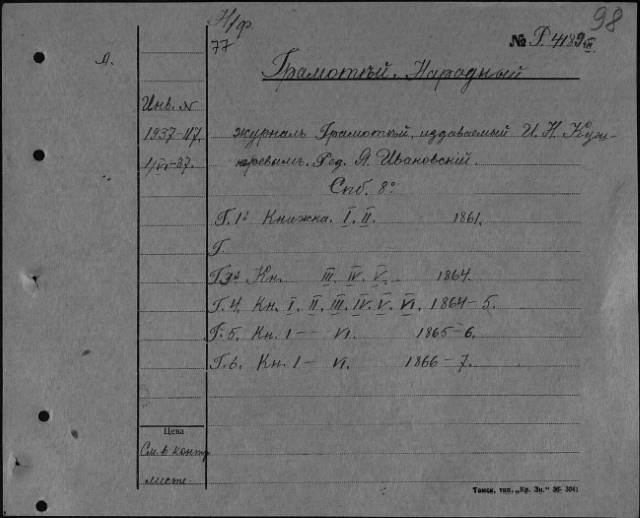 Н/ф
77
98
№ Р. 4189
Грамотѣй. Народный
Инв. №
1937-117.
1/VI-37.
журналъ Грамотѣй, издаваемый И. Н. Куш-
неревымъ. Ред. А. Ивановскій.
Спб. 8°
Г. 1й Книжка. I. II. 1861.
Г
Г3й Кн. III. IV. V. 1864.
Г. 4. Кн. I. II. III. IV. V. VI. 1864-5.
Г. 5. Кн. I — VI. 1865-6.
Г. 6. Кн. I — VI. 1866-7.
Цена
См. в контр
листе.
Томск, тип. „Кр. Зн."